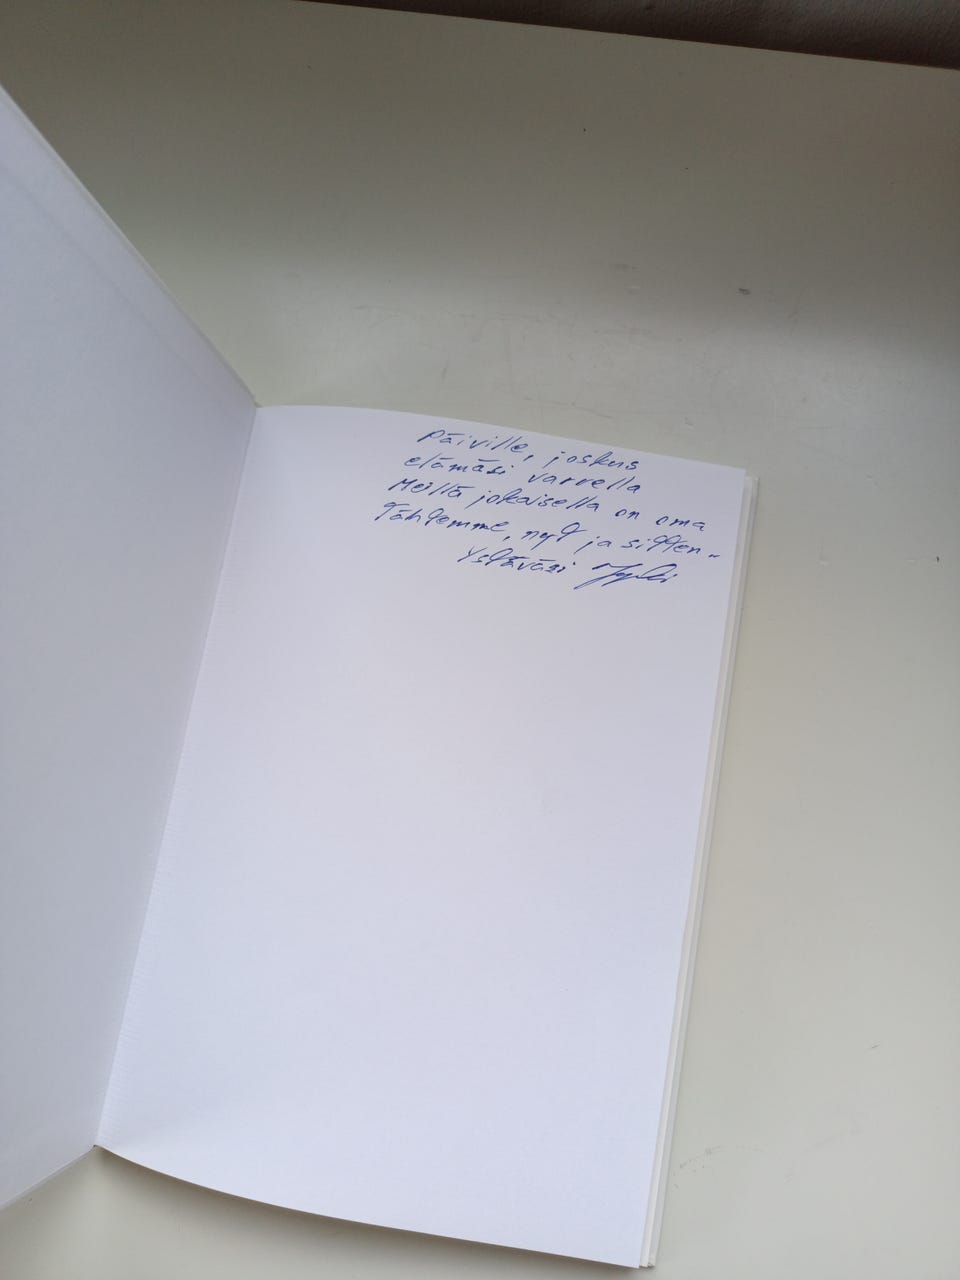 Päiville, joskus
elämäsi varrella
Meillä jokaisella on oma
Tähtemme, nyt ja sitten..
Ystäväsi